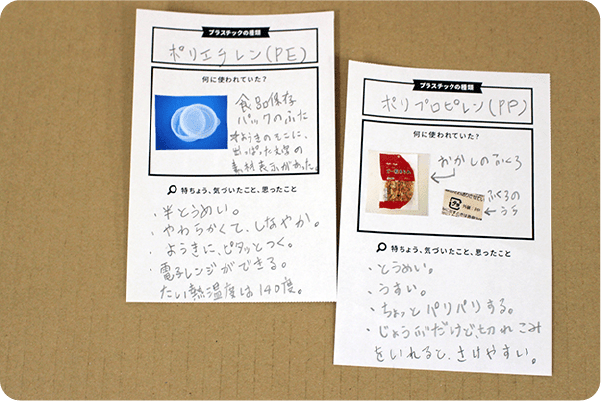 プラスチックの種類
ポリエチレン(PE)
何に使われていた?
食品保存
パックのふた
ようきのそこに、
出っぱった文字の
素材表示があった。
特ちょう、気づいたこと、思ったこと
・半とうめい。
・やわらかくて、しなやか。
・ようきに、ピタッとつく。
・電子レンジができる。
たい熱温度は140度。
プラスチックの種類
ポリプロピレン(PP)
何に使われていた?
おかしのふくろ
ふくろの
うら
特ちょう、気づいたこと、思ったこと
・とうめい。
・うすい。
・ちょっとパリパリする。
・じょうぶだけど、切れこみ
をいれると、さけやすい。